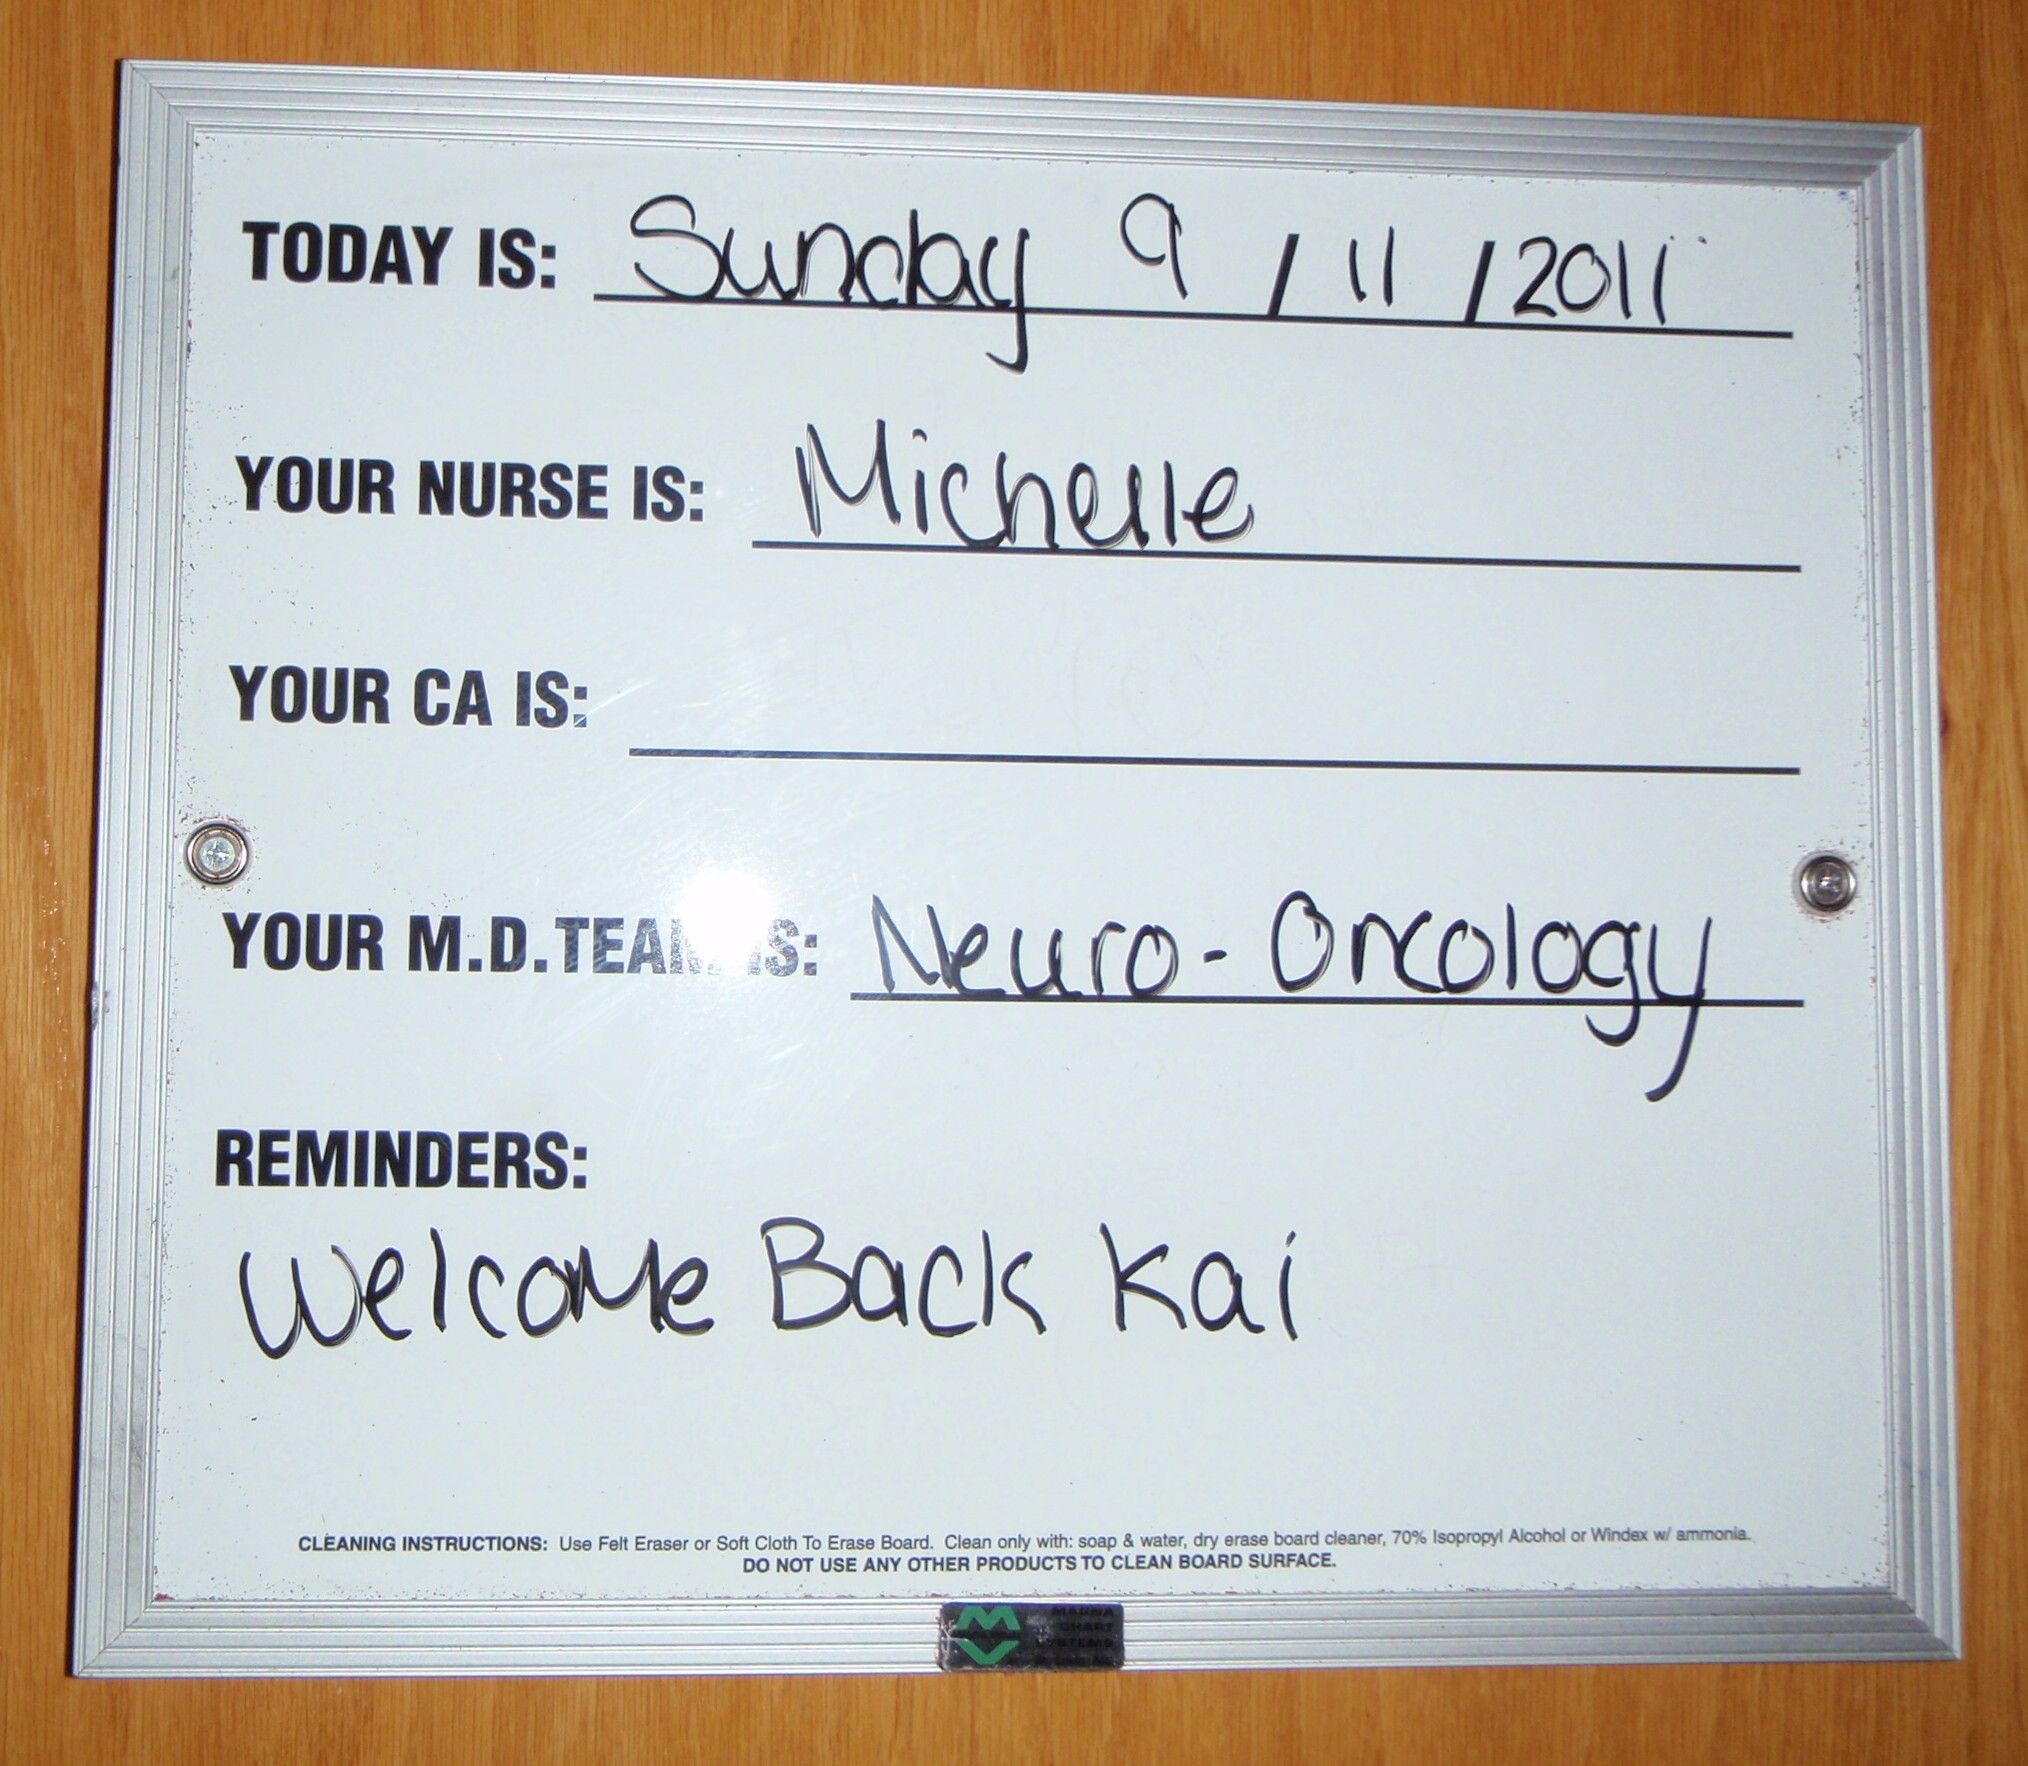 TODAY IS: Sunday 9 / 11 / 2011
YOUR NURSE IS: Michelle
YOUR CA IS:
YOUR M.D. TEAM IS: Neuro-Oncology
REMINDERS:
Welcome Back Kai
CLEANING INSTRUCTIONS: Use Felt Eraser or Soft Cloth To Erase Board. Clean only with: soap & water, dry erase board cleaner, 70% Isopropyl Alcohol or Windex w/ ammonia.
DO NOT USE ANY OTHER PRODUCTS TO CLEAN BOARD SURFACE.
MAGNA
CHART
SYSTEMS